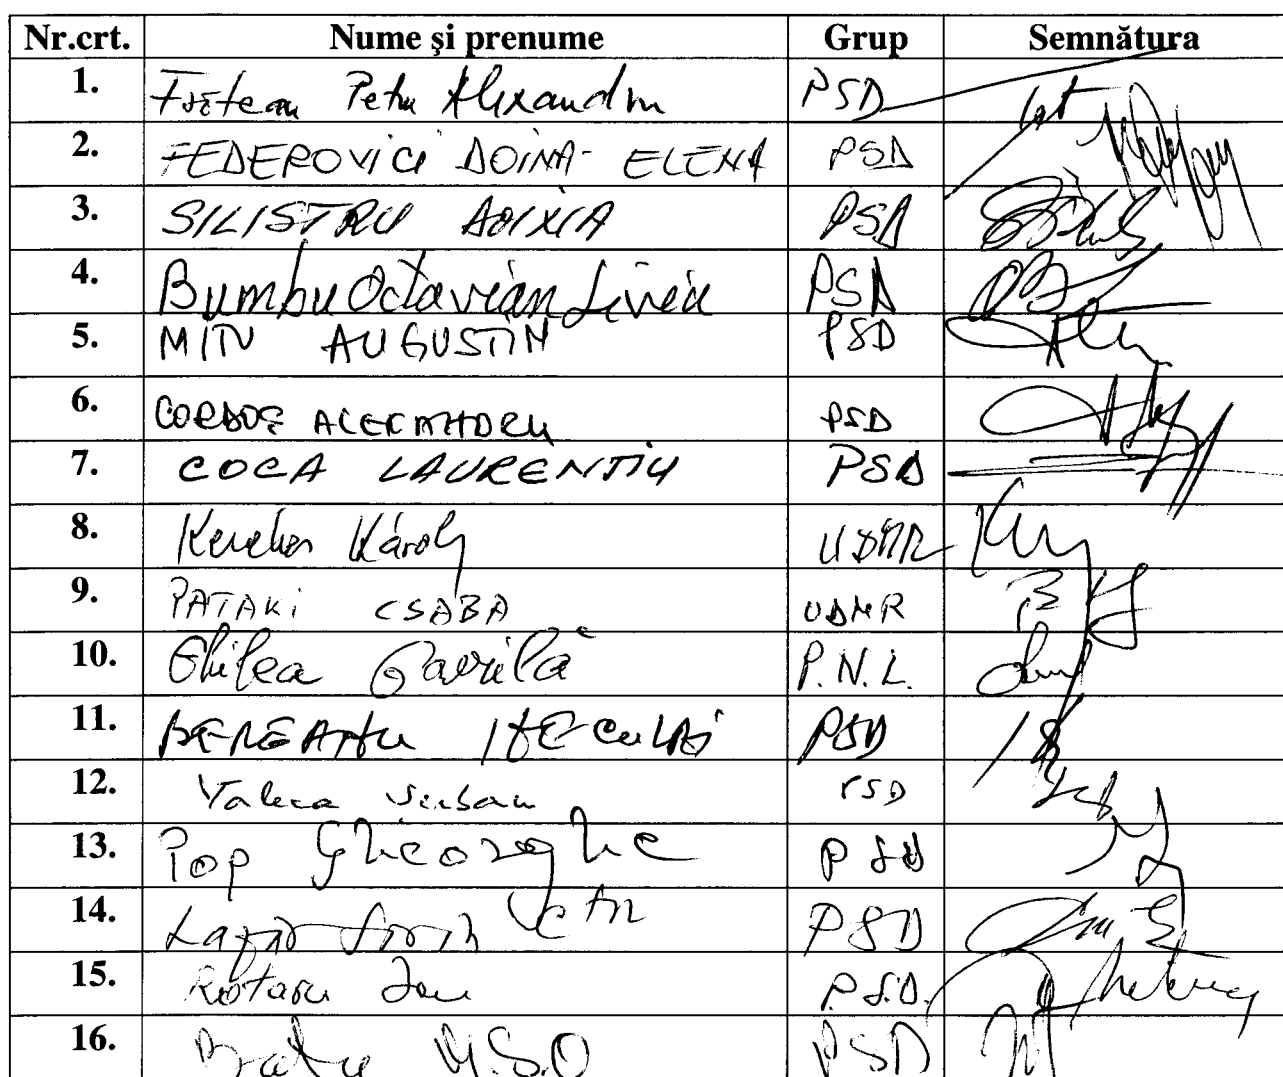 Nr.crt. Nume și prenume Grup Semnătura
1. Petru Alexandru PSD
2. FEDEROVICI DOINA-ELENA PSD
3. SILISTRU DOINA PSD
4. Bumbu Octavian Liviu PSD
5. MITU AUGUSTIN PSD
6. CORDOȘ ALEXANDRU PSD
7. COCA LAURENȚIU PSD
8. Kereskes Károly UDMR
9. PATAKI CSABA UDMR
10. Ghilea Gavrilă P.N.L.
11. NECULAI PSD
12. Valeca Serban PSD
13. Pop Gheorghe PSD
14. Lazăr Sorin PSD
15. Rotaru Ion P.S.D.
16. M.S.O PSD